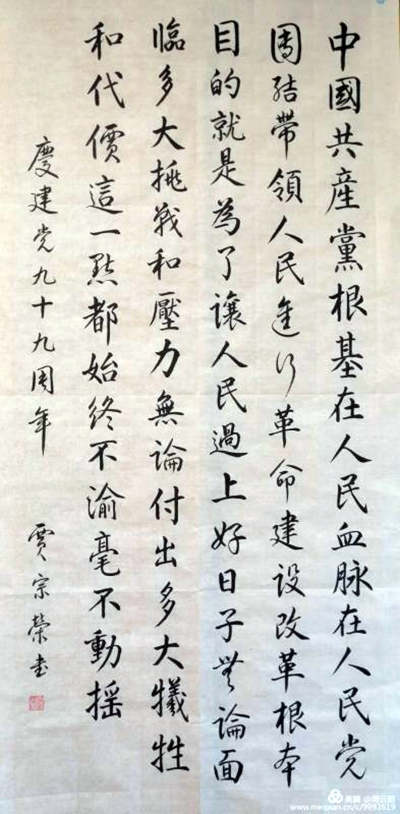 中國共産黨根基在人民血脉在人民党
團结帶領人民進行革命建设改革根本
目的就是為了讓人民過上好日子無論面
臨多大挑战和壓力無論付出多大犧牲
和代價這一點都始终不渝毫不動摇
慶建党九十九周年
贾宗榮书
美篇@周云朗
www.meipian.cn/c/9993619